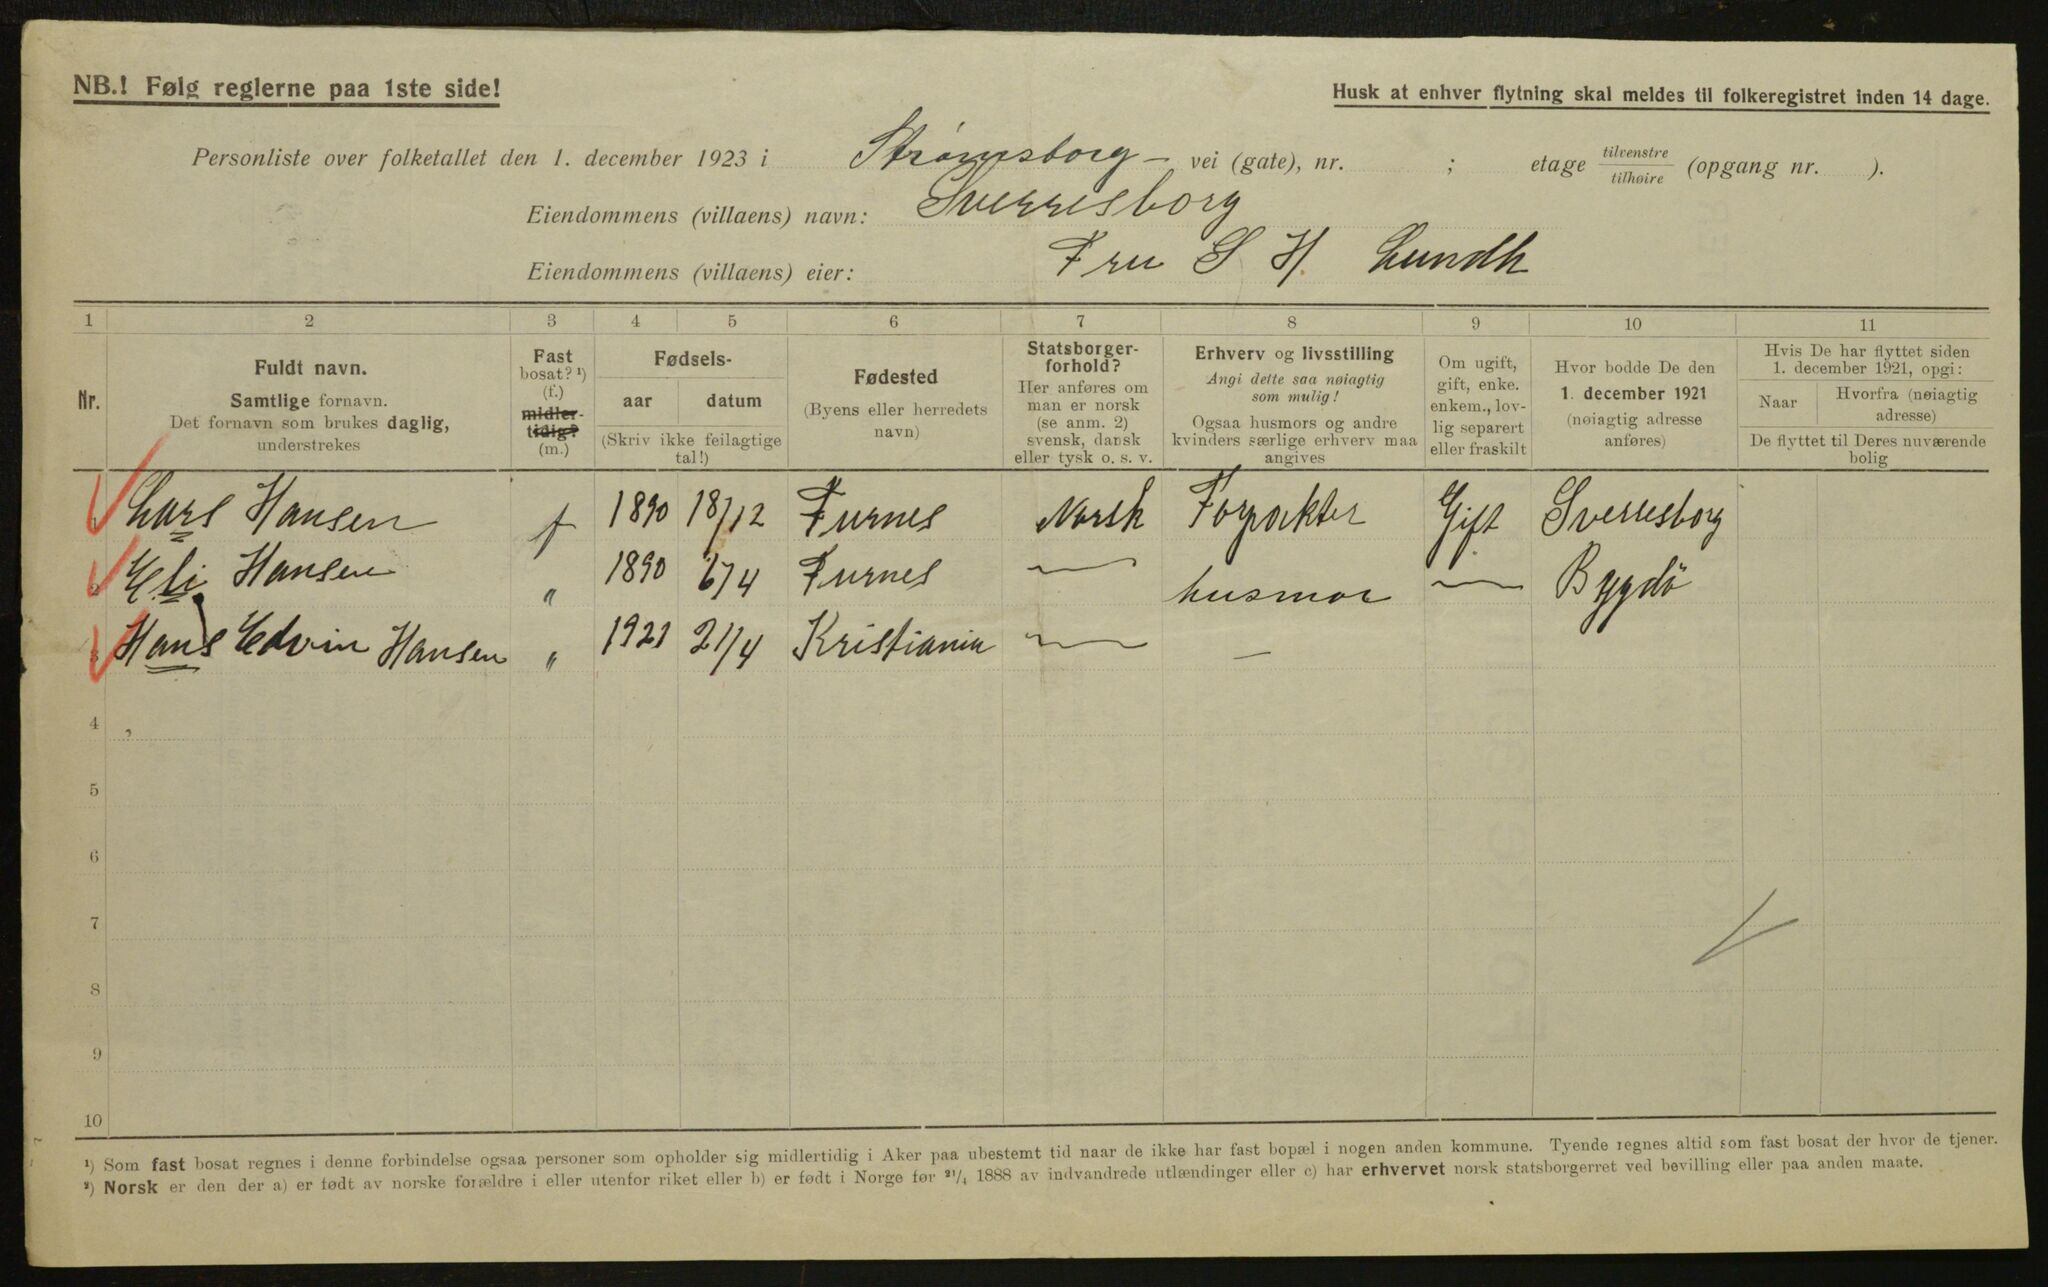 NB.! Følg reglerne paa 1ste side!
Husk at enhver flytning skal meldes til folkeregistret inden 14 dage.
Personliste over folketallet den 1. december 1923 i Strømsborg- vei (gate), nr. ; etage tilvenstre/tilhøire (opgang nr. ).
Eiendommens (villaens) navn: Sverresborg
Eiendommens (villaens) eier: Fru S H. Lundh
1 2 3 4 5 6 7 8 9 10 11
Nr.
Fuldt navn.
Samtlige fornavn.
Det fornavn som brukes daglig,
understrekes
Fast
bosat? ¹)
(f.)
midler-
tidig?
(m.)
Fødsels-
aar datum
(Skriv ikke feilagtige
tal!)
Fødested
(Byens eller herredets
navn)
Statsborger-
forhold?
Her anføres om
man er norsk
(se anm. 2)
svensk, dansk
eller tysk o. s. v.
Erhverv og livsstilling
Angi dette saa nøiagtig
som mulig!
Ogsaa husmors og andre
kvinders særlige erhverv maa
angives
Om ugift,
gift, enke.
enkem., lov-
lig separert
eller fraskilt
Hvor bodde De den
1. december 1921
(nøiagtig adresse
anføres)
Hvis De har flyttet siden
1. december 1921, opgi:
Naar Hvorfra (nøiagtig
adresse)
De flyttet til Deres nuværende
bolig
1 Lars Hansen f 1890 18/12 Furnes Norsk Forpakter Gift Sverresborg
2 Eli Hansen " 1890 6/4 Furnes — husmor — Bygdö
3 Hans Edvin Hansen " 1921 21/4 Kristiania — —
4
5
6
7
8
9
10
¹) Som fast bosat regnes i denne forbindelse ogsaa personer som opholder sig midlertidig i Aker paa ubestemt tid naar de ikke har fast bopæl i nogen anden kommune. Tyende regnes altid som fast bosat der hvor de tjener.
²) Norsk er den der a) er født av norske forældre i eller utenfor riket eller b) er født i Norge før ²¹/₄ 1888 av indvandrede utlændinger eller c) har erhvervet norsk statsborgerret ved bevilling eller paa anden maate.